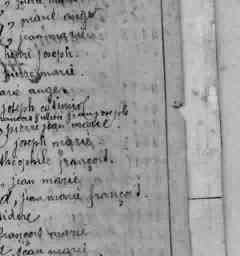 , marie ange
, jean marie
henri joseph.
pierre marie.
marie ange.
joseph casimir
julien jean joseph
, pierre jean marie.
joseph marie
théophile françois.
, jean marie
, jean marie françois.
isidore
françois marie
jean marie